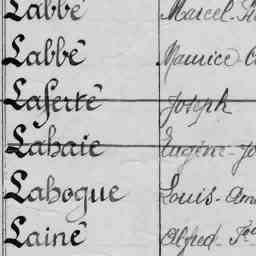 Labbé Marcel
Labbé Maurice
Laferté Joseph
Lahaie Eugène
Lahogue Louis
Lainé Alfred